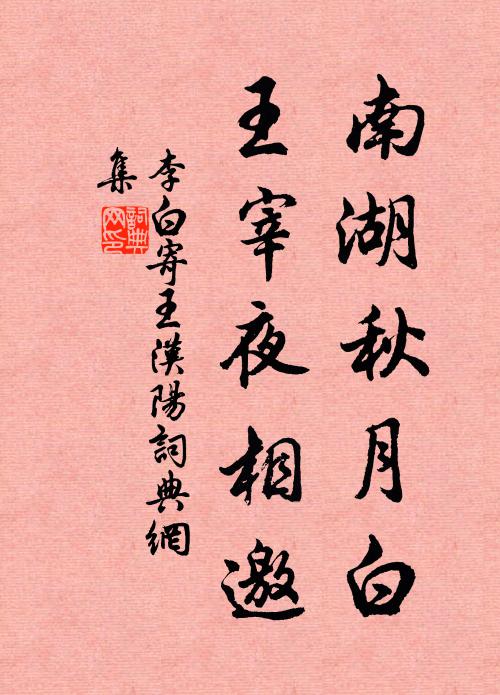 南湖秋月白
王宰夜相邀
李白寄王漢陽詞典網
集
詞典網印